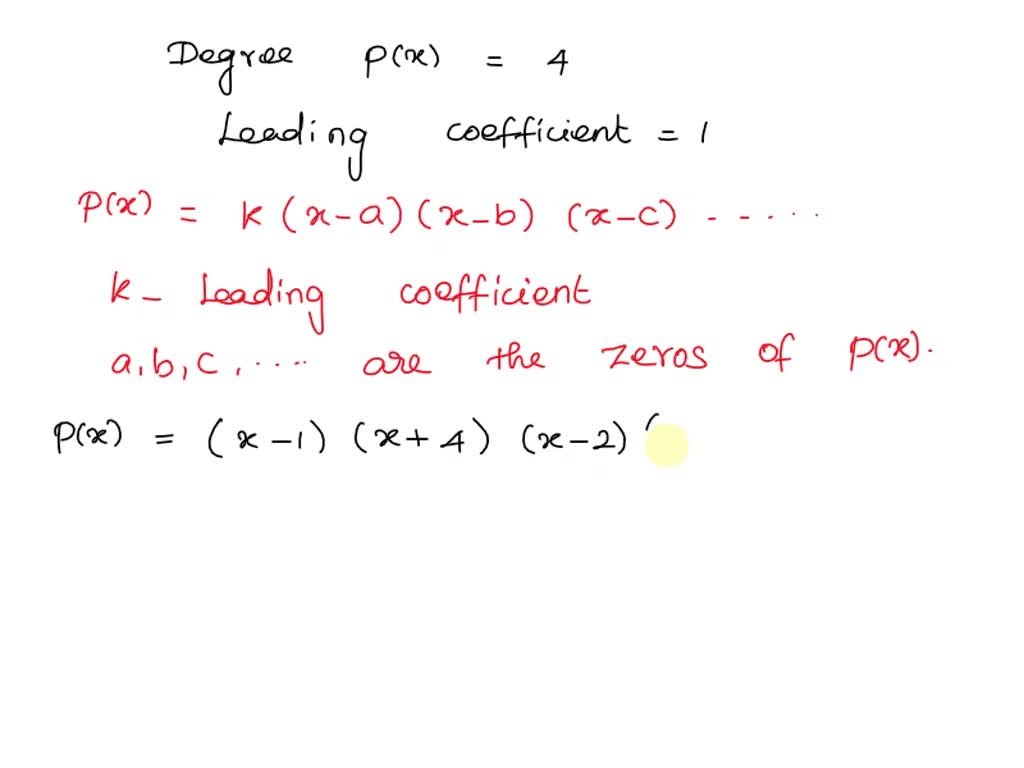 Degree P(x) = 4
Leading coefficient = 1
P(x) = k (x-a) (x-b) (x-c) - - · · ·
k - Leading coefficient
a, b, c, ···· are the zeros of P(x).
P(x) = (x-1) (x+4) (x-2) (